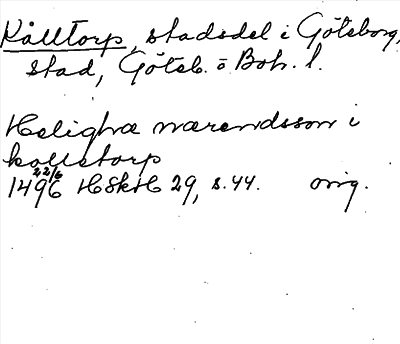 Källtorp, stadsdel i Göteborg,
stad, Göteb. o Boh. l.
Helighæ nærendsson i
kollstorp
1496 22/6 HSkH 29, s. 44. orig.